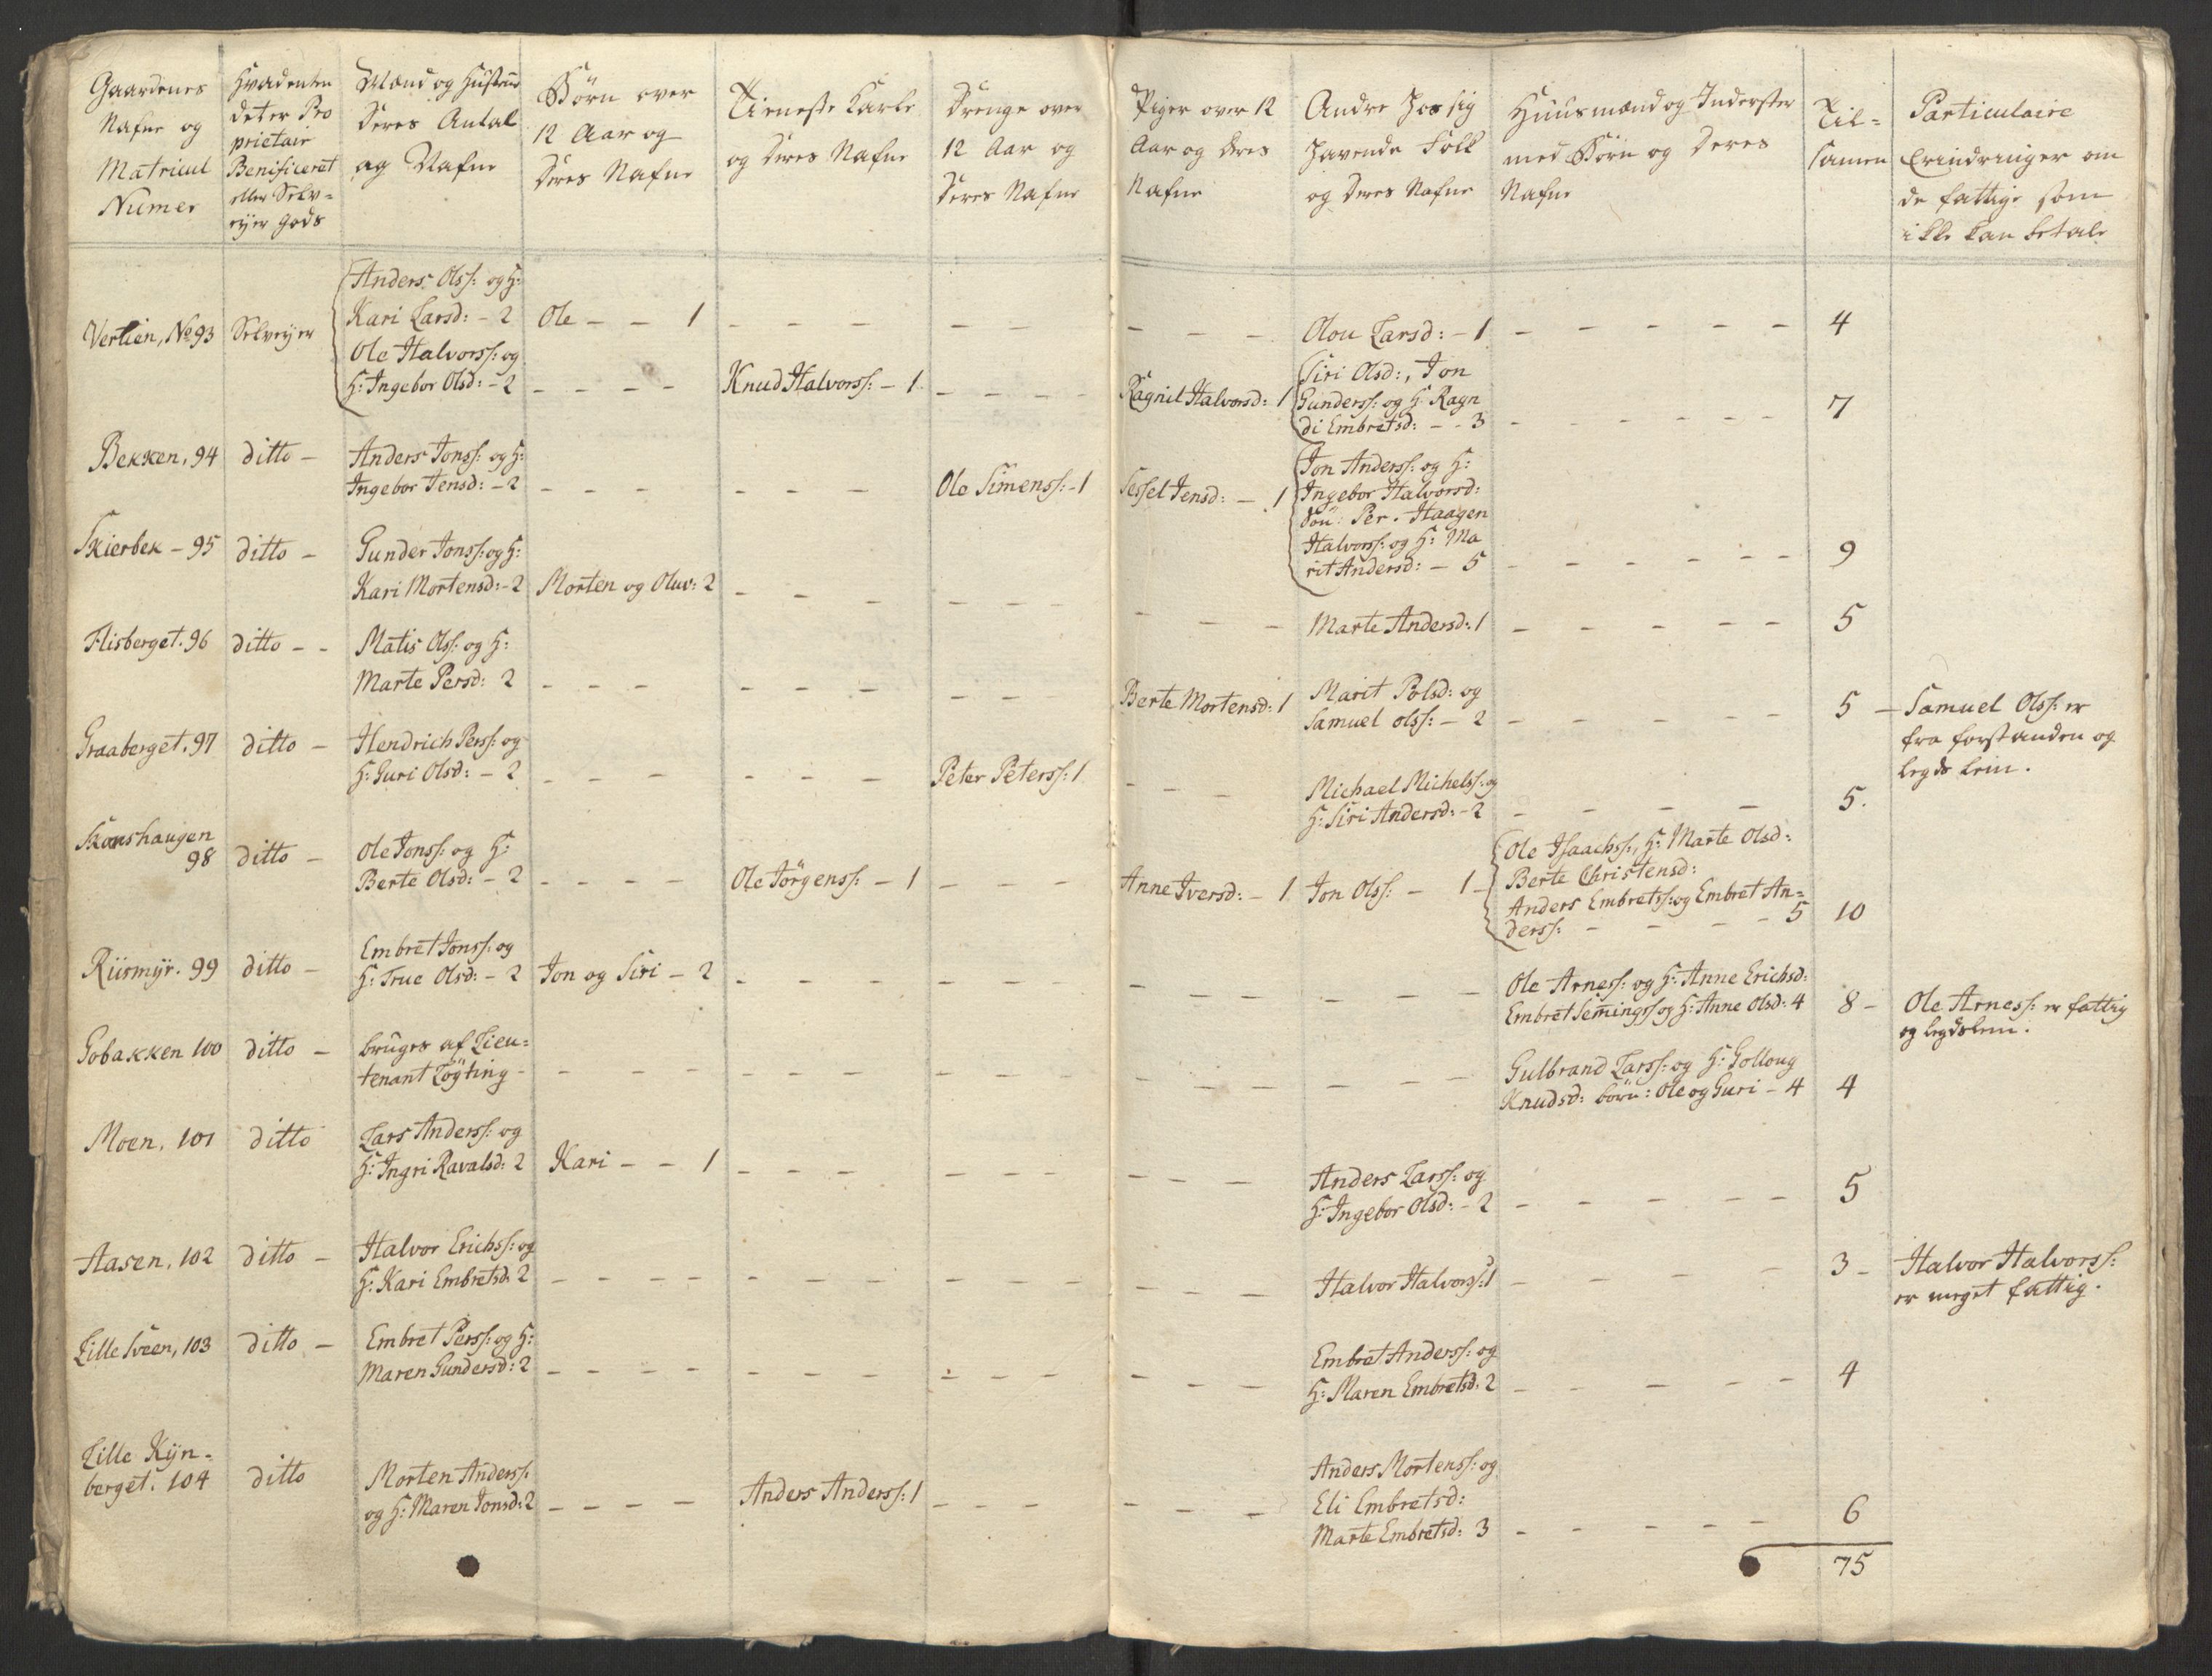 Gaardenes
Nafne og
Matricul
Numer
Hvadenten
det er Pro
prietair
Benificeret
eller Selv=
eijer Gods
Mænd og Hustruer
Deres Antal
og Nafne
Börn over
12 Aar og
Deres Nafne
Tieneste Karle
og Deres Nafne
Drenge over
12 Aar og
Deres Nafne
Piger over 12
Aar og deres
Nafne
Andre hos sig
havende Folk
og Deres Nafne
Huusmænd og Inderster
med Börn og Deres
Nafne
Til=
samen
Particulaire
Erindringer om
de fattige som
ikke kan betale
Anders Olss: og H:
Kari Larsd: - 2
Vertien, No 93 Selveijer
Ole - - 1
Olou Larsd: - 1
4
Ole Halvorss: og
H: Ingebor Olsd: - 2
Knud Halvorss: - 1
Ragnil Halvorsd: 1
Siri Olsd:, Jon
Gunderss: og H: Ragn
di Embretsd: - - 3
7
Bekken, 94 ditto -
Anders Jonss: og H:
Ingebor Jensd: - 2
Ole Simenss: - 1
Sessel Jensd: - 1
Jon Anderss: og H:
Ingebor Halvorsd:
Sön: Per. Haagen
Halvorss: og H: Ma
rit Andersd: - 5
9
Skierbek - 95 ditto -
Gunder Jonss: og H:
Kari Mortensd: - 2
Morten og Oluv: 2
Marte Andersd: 1
5
Flisberget. 96 ditto - -
Matis Olss: og H:
Marte Persd: 2
Berte Mortensd: 1
Marit Polsd: og
Samuel olss: - 2
5 - Samuel Olss: er
fra forstanden og
legds lem.
Graaberget. 97 ditto -
Hendrich Perss: og
H: Guri Olsd: - 2
Peter Peterss: 1
Michael Michelss: og
H: Siri Andersd: - 2
5.
Skonshaugen
98 ditto -
Ole Jonss: og H:
Berte Olsd: - 2
Ole Jörgenss: - 1
Anne Iversd: - 1
Jon Olss: - 1
Ole Isaachss:, H: Marte Olsd:
Berte Christensd:
Anders Embretss: og Embret An=
derss: - - - - 5
10
Riismyr. 99 ditto -
Embret Jonss: og
H: True Olsd: - 2
Jon og Siri - 2
Ole Arness: og H: Anne Erichsd:
Embret Semingss og H: Anne Olsd: 4
8 - Ole Arness: er fattig
og legdslem.
Gobakken 100 ditto -
bruges af Lieu=
tenant Töyting -
Gulbrand Larss: og H: Golloug
Knudsd: börn: Ole og Guri - 4
4
Moen, 101 ditto
Lars Anderss: og
H: Ingri Ravalsd: 2
Kari - - 1
Anders Larss: og
H: Ingebor Olsd: - 2
5
Aasen, 102 ditto -
Halvor Erichss: og
H: Kari Embretsd: 2
Halvor Halvorss: 1
3 - Halvor Halvorss:
er meget fattig.
Lille Sveen, 103 ditto -
Embret Perss: og H:
Maren Gundersd: 2
Embret Anderss: og
H: Maren Embretsd: 2
4
Lille Kijn=
berget. 104 ditto
Morten Anderss:
og H: Maren Jonsd: 2
Anders Anderss: 1
Anders Mortenss: og
Eli Embretsd:
Marte Embretsd: 3
6
75